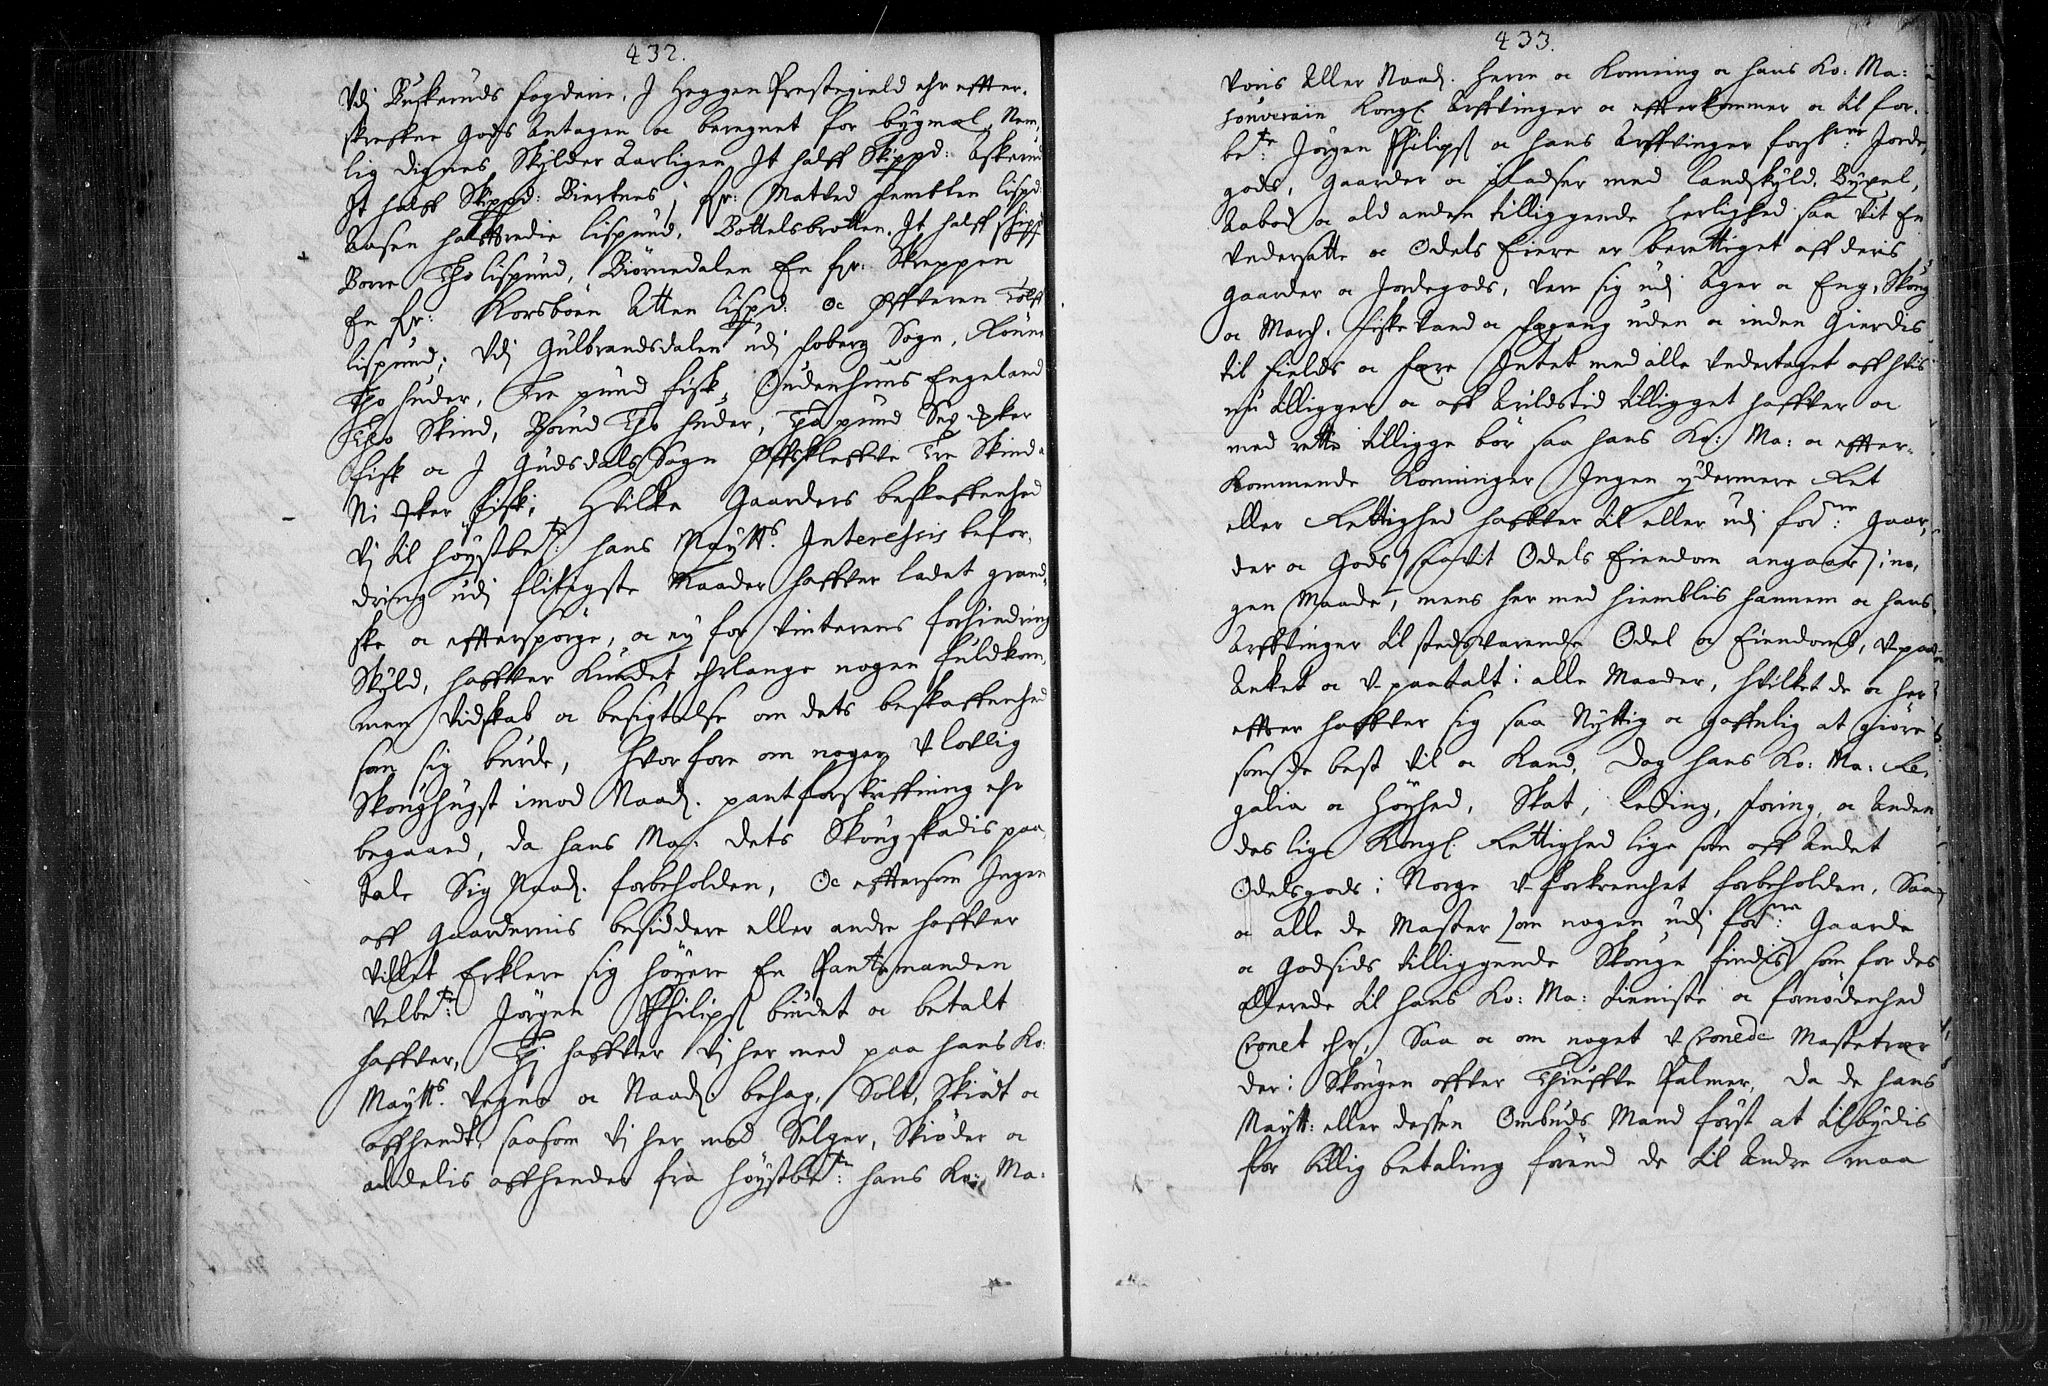 432.
Udj Buskeruds fogderie, I Heggen Prestegield ehr effter-
skreffne Gods Antagen oc beregnet for bygmæl, Nem,
lig Dignes Skÿlder Aarligen It halff Skippd: Askerud
It halff Skippd: Biertnes j fr: Matved femtten lispd:
Aasen halffredie lispund, Bottelsbrotten It halff skipp
Borre Tho lispund, Biørnedalen En fr: Skreppen
En fr: Korsboen Atten lispd: oc Offveren Tolff
lispund; Udj Gulbrandsdalen udj foberg Sogn,
Tho huder, Tre pund fisk, Oudenhuus Engeland
Tho Skind, Tho huder, Tho pund Sex
fisk oc J Gudsdals Sogn Tre Skind
Ni fisk; Hvilke Gaarders beskaffenhed
Vj til høystbete: hans Maytts. Interessis befor,
dring udj flitigste Maader haffver ladet grand-
ske oc efftersporge, oc ey for vinterens forhindring
Skÿld, haffver Kundet ehrlange nogen fuldkom,
men Vidskab oc besigtelse om dets beskaffenhed
som sig burde, hvorfore om nogen Ulovlig
Skoughugst imod Naad. pantforskriffning ehr
begaaed, da hans Ma: dets Skougskadis paa,
tale Sig Naad. forbeholden, Oc eftersom Ingen
aff Gaardernis besiddere eller andre haffver
villet Erklere sig høyere En Pantemanden
Velbete: Jörgen Philips budet oc betalt
haffver, Tj haffver Vj her med paa hans Ko:
Maytts. Vegne oc Naad. behag, Solt, Skiødt oc
affhendt, saasom Vj her med Selger, Skiøder oc
aldelis affhender fra høystbete: hans Ko: Ma:
433.
Voris Aller Naad. Herre oc Konning oc hans Ko: Ma:
souverain Kongl Arffvinger oc efterkommer oc til for-
bete: Jörgen Philips oc hans Arffvinger forskne: Jorde,
gods, Gaarder oc pladser med Landskyld, Bÿxel,
Aabod oc ald anden tilliggende herlighed saa vit En
Undersatte oc Odels Eiere er berettiget aff deris
Gaarder oc Jordegods, Vere sig udj Ager oc Eng, Skoug
oc March, fiske Vand oc fægang uden oc inden Gierdis
til fields oc fære Intet med alle undertaget aff hvis
nu tilligger oc aff Arildstid tilligget haffver oc
med rette tilligge bør saa hans Ko: Ma: oc effter-
kommende Konninger Ingen ydermere Ret
eller Rettighed haffver til eller udj forne: Gaar,
der oc Gods saavit Odels Eiendom angaar i no,
gen Maade, mens her med hiembliis hannem oc hans
Arffvinger til stedsvarende Odel oc Eiendomb, U-paa
Anket oc U-paatalt i alle Maader, hvilket de oc her
effter haffver sig saa Nyttig oc gaffnlig at giøre
som de best vil oc Kand, Dog hans Ko: Ma: Re,
galia oc høyhed, Skat, Leding, foring, oc Anden
deslige Kongl. Rettighed lige som aff Andet
Odelsgods i Norge U-forkrenchet forbeholden, Saa
oc alle de Master som nogen udj forne: Gaarde
oc Godsids tilliggende Skouge findis som for des
allerede til hans Ko: Ma: tienniste oc fornødenhed
Cronet ehr, Saa oc om noget U-Cronede Mastetrær
der i Skougen offver Thiuffve Palmer, Da de hans
Maytt: eller dessen Ombuds Mand först at tilbÿdis
for billig betaling forend de til Andre maa